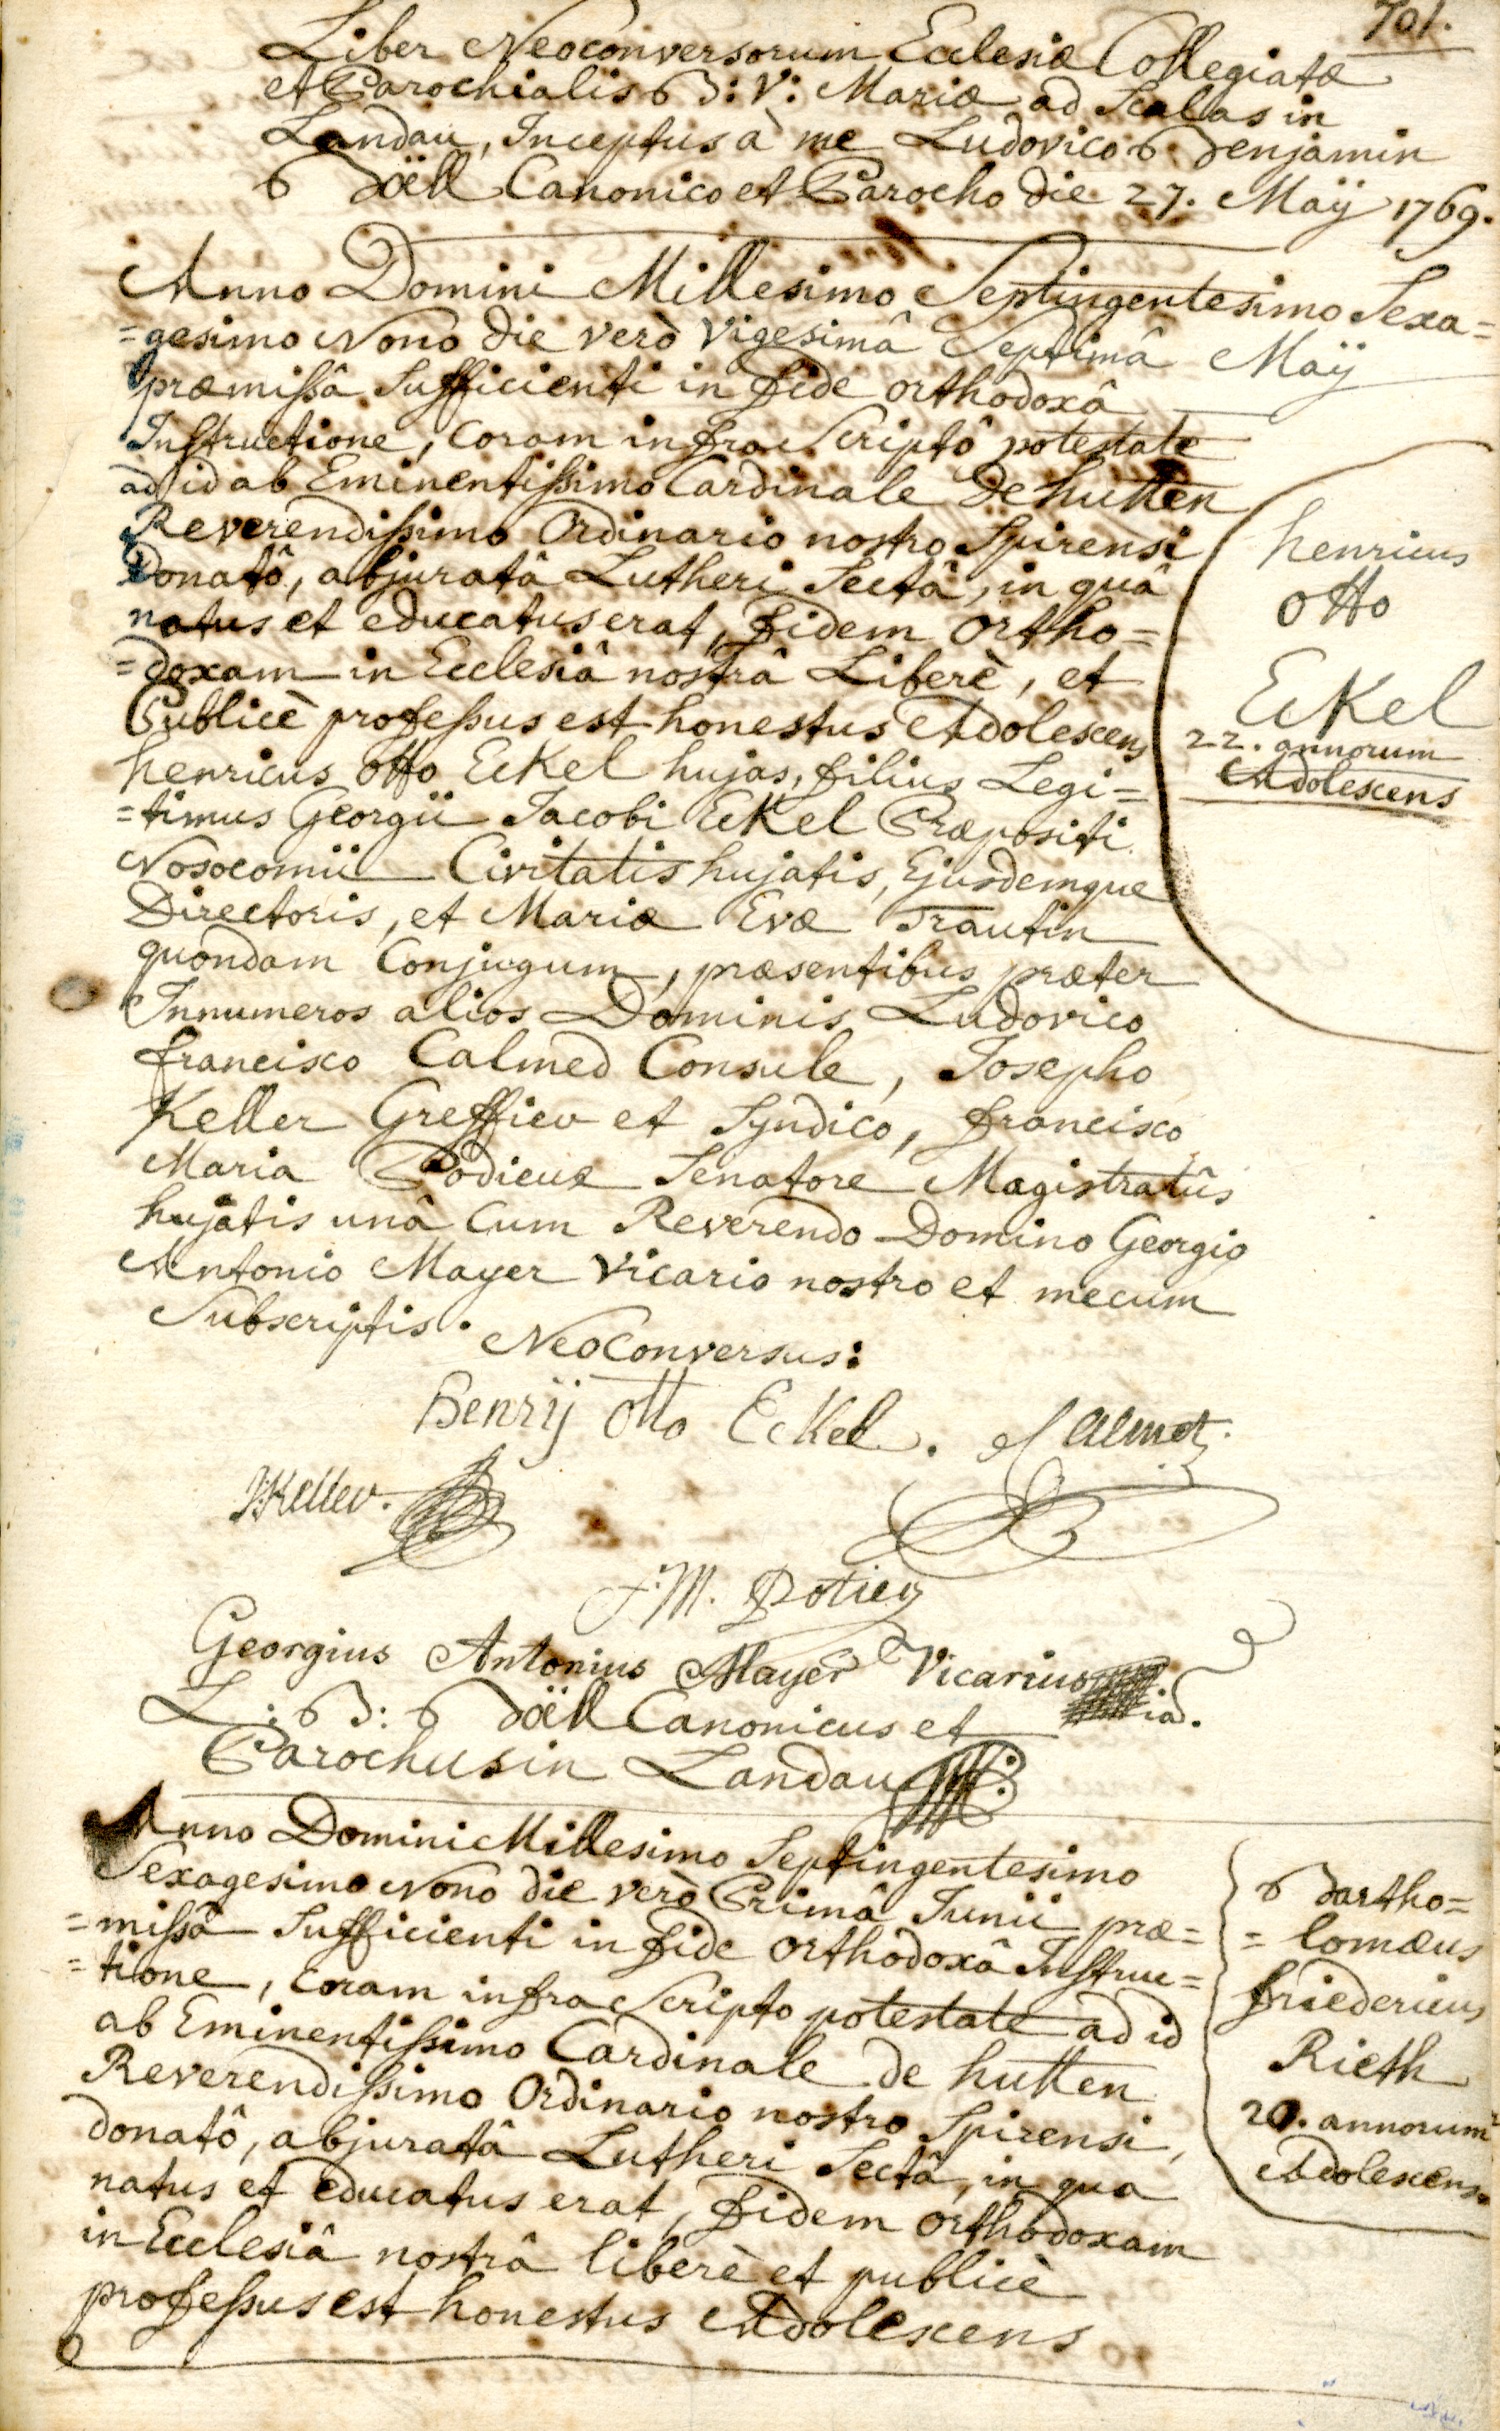 701.
Liber Neoconversorum Ecclesiæ Collegiatæ
et Parochialis B: V: Mariæ ad Scalas in
Landau, Inceptus à me Ludovico Benjamin
Böell Canonico et Parocho die 27. Maÿ 1769.
Anno Domini Millesimo Septingentesimo Sexa=
=gesimo Nono die verò vigesimâ Septimâ Maÿ
præmissâ Sufficienti in fide orthodoxâ
Instructione, Coram infra Scriptô potestate
ad id ab Eminentissimo Cardinale De hutten
Reverendissimo Ordinario nostro Spirensi
Donatô, abjuratâ Lutheri Sectâ, in quâ
natus et educatus erat, fidem ortho=
=doxam in Ecclesiâ nostrâ Liberè, et
Publicè professus est honestus Adolescens
henricus otto Eckel hujas, filius Legi=
=timus Georgii Jacobi Eckel Præpositi
Nosocomii Civitatis hujatis, Ejusdemque
Directoris, et Mariæ Evæ Trautin
quondam Conjugum, præsentibus præter
Innumeros alios Dominis Ludovico
francisco Calmed Consule, Josepho
Keller Greffier et Syndico, francisco
Maria Podieux Senatore Magistratûs
hujatis unâ Cum Reverendo Domino Georgio
Antonio Mayer vicario nostro et mecum
Subscriptis.
henricus
otto
Eckel
22. annorum
Adolescens
NeoConversus:
Henrÿ otto Eckel.
Calmet.
J:Keller.
F:M. Potieu
Georgius Antonius Mayer Vicarius
L: B: Böell Canonicus et
Parochus in Landau
Anno Domini Millesimo Septingentesimo
Sexagesimo Nono die verò Primâ Junii præ=
=missâ Sufficienti in fide orthodoxâ Instruc=
=tione, coram infra Scripto potestate ad id
ab Eminentissimo Cardinale de hutten
Reverendissimo Ordinario nostro Spirensi,
donatô, abjuratâ Lutheri Sectâ, in qua
natus et educatus erat, fidem orthodoxam
in Ecclesiâ nostrâ liberè et publicè
professus est honestus Adolescens
Bartho=
=lomæus
friedericus
Rieth
20. annorum
Adolescens.